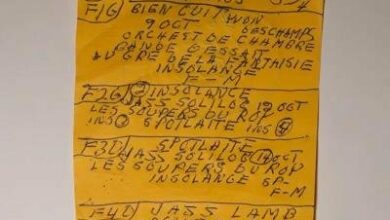 F1G BIEN CUIT WON
9 OCT DESCHAMPS
ORCHEST DE CHAMBRE
BANDE DESSAIT
AU GRE DE LA FANTAISIE
INSOLANCE
F-M
F2G INSOLANCE
JASS SOLILOG 19 OCT
LES SOUPERS DU ROY
INS SPOTLAITE INS
F3D SPOTLAITE
JASS SOLILOG 19 OCT
LES SOUPERS DU ROY
INSOLANGE SP-
F-M
F4D JASS LAMB